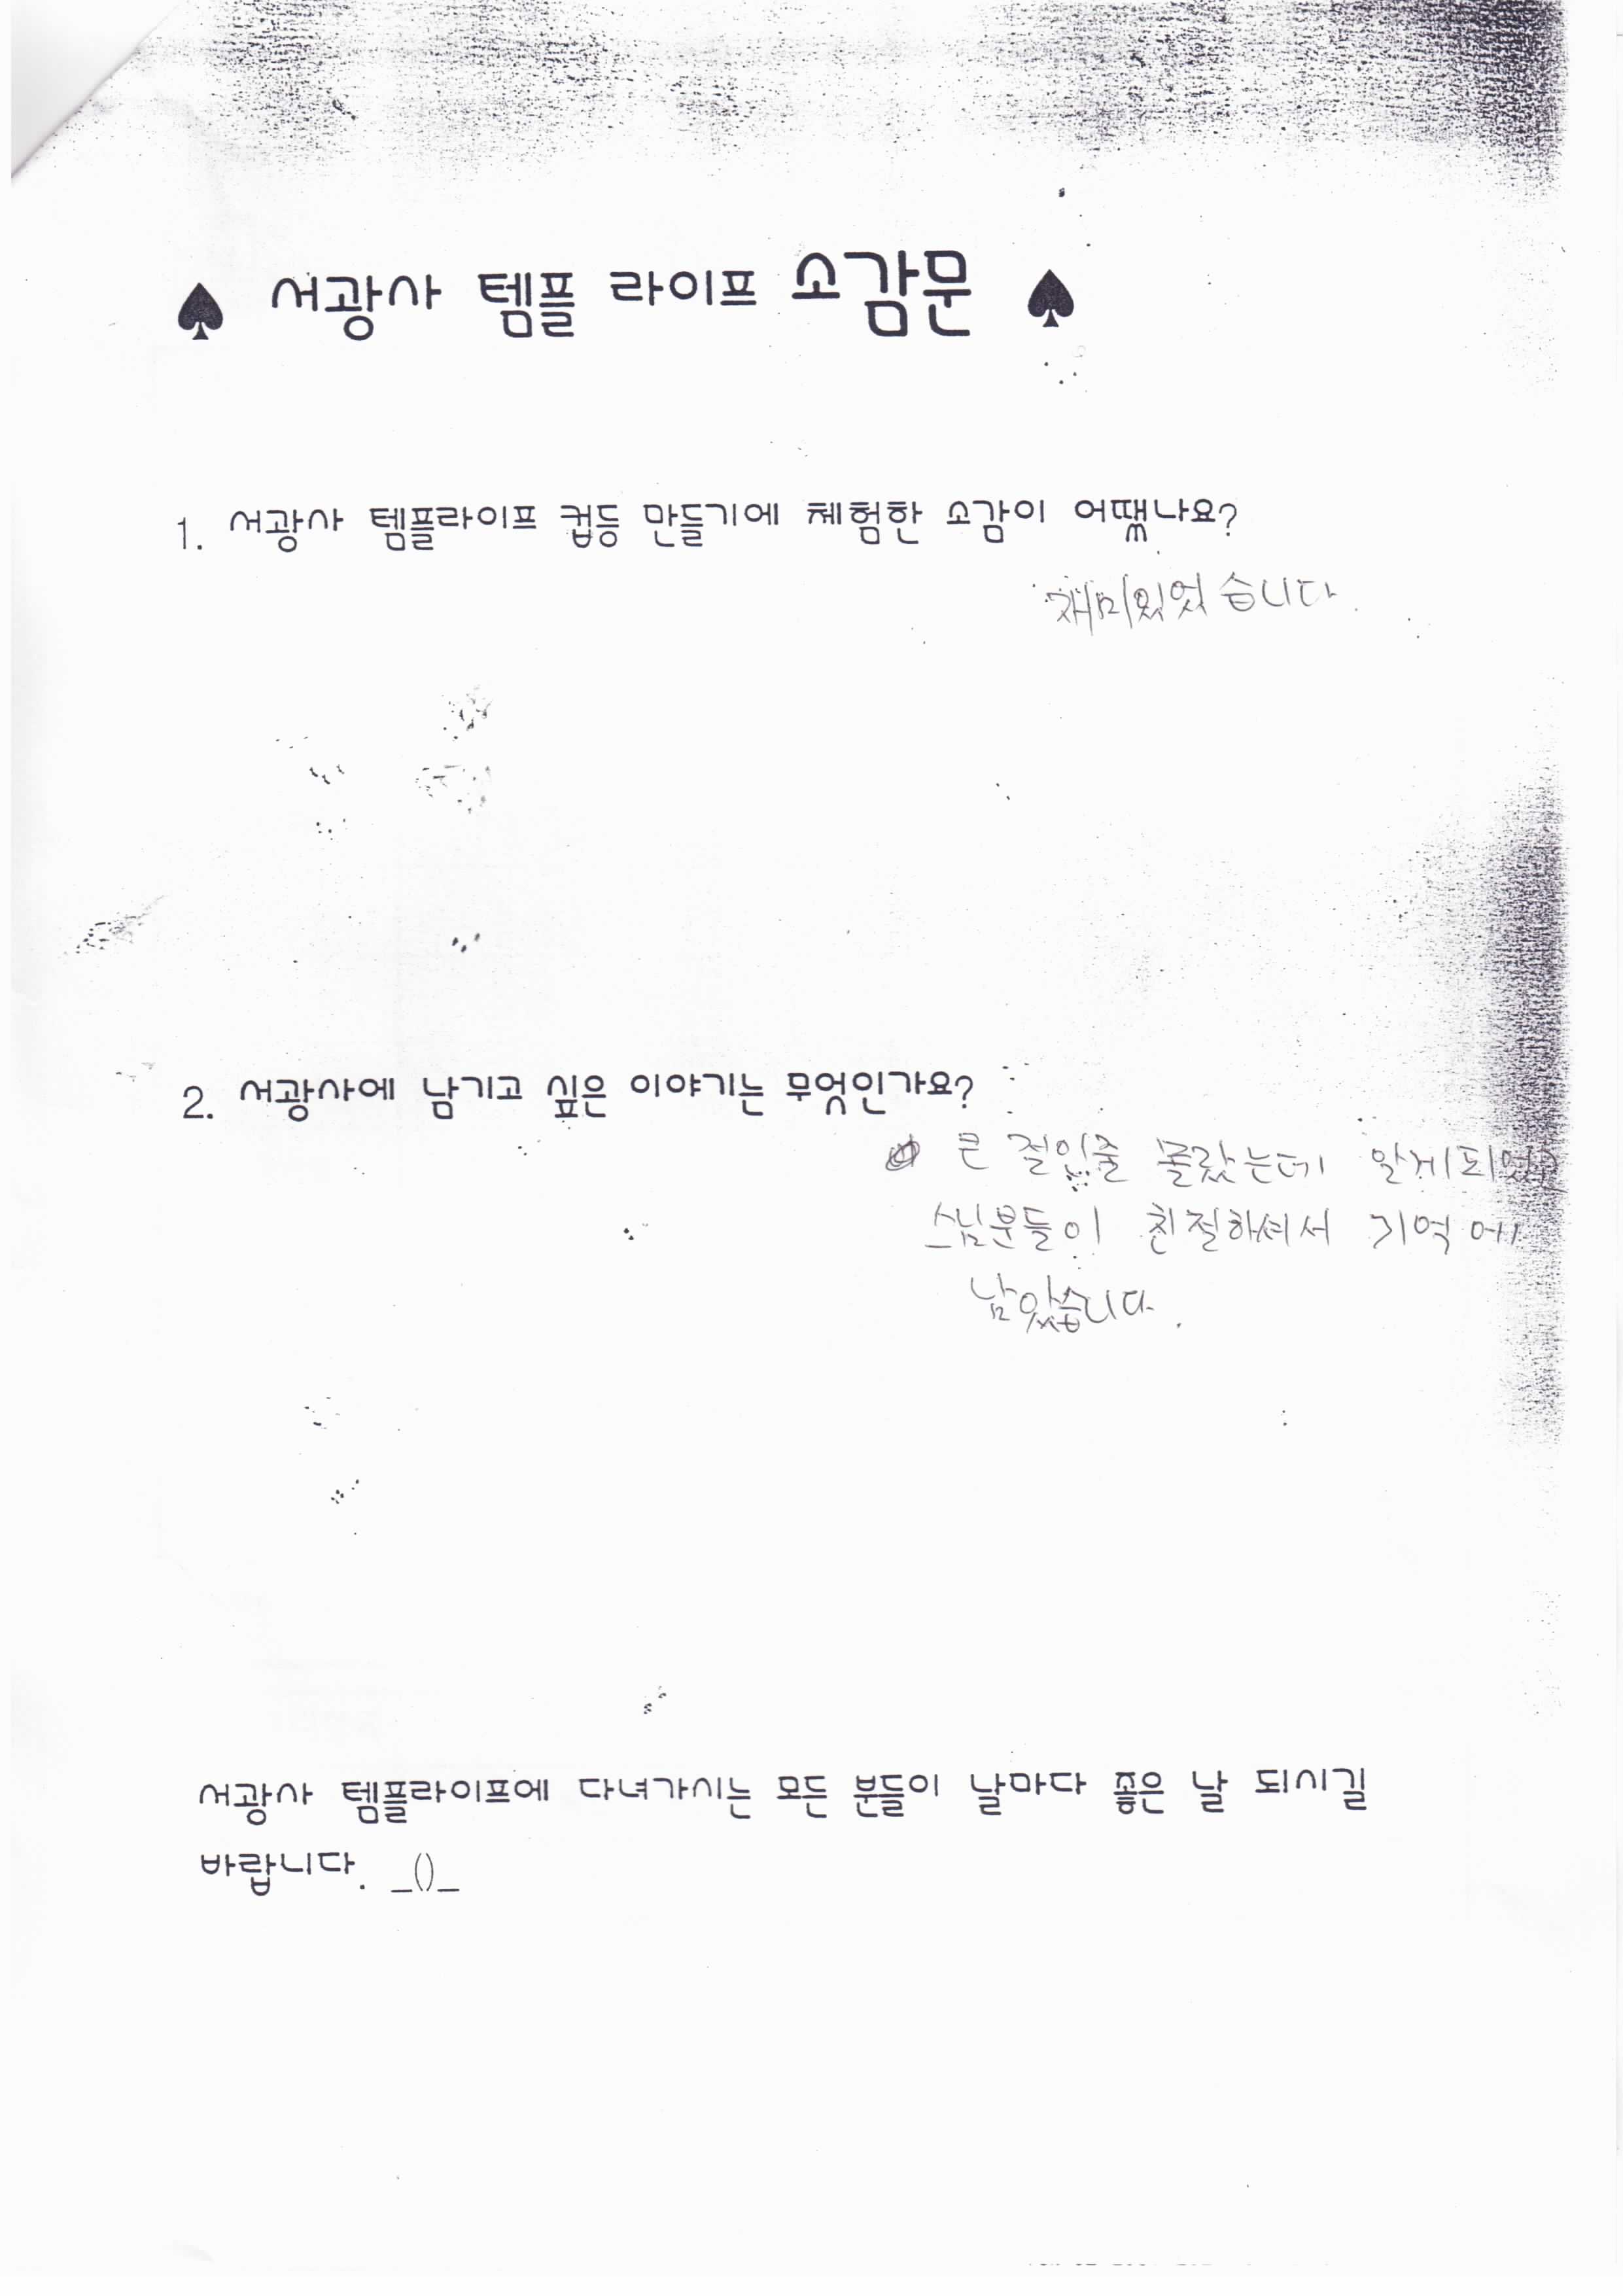 ♠ 서광사 템플 라이프 소감문 ♠
1. 서광사 템플라이프 컵등 만들기에 체험한 소감이 어땠나요?
재미있었습니다.
2. 서광사에 남기고 싶은 이야기는 무엇인가요?
큰 절인줄 몰랐는데 알게되었고
스님분들이 친절하셔서 기억에
남았습니다.
서광사 템플라이프에 다녀가시는 모든 분들이 날마다 좋은 날 되시길
바랍니다. _()_